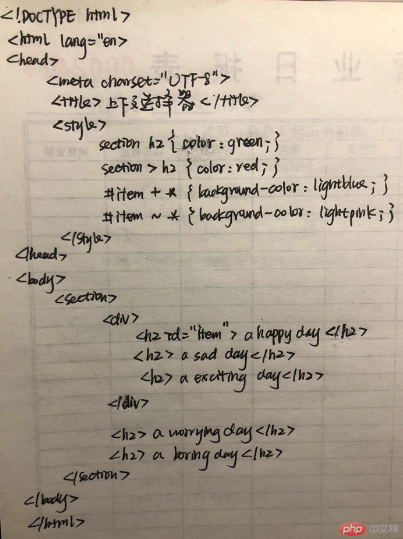 <!DOCTYPE html>
<html lang="en>
<head>
<meta charset="UTF-8">
<title>上下文选择器</title>
<style>
section h2 { color: green; }
section > h2 { color: red; }
#item + * { background-color: lightblue; }
#item ~ * { background-color: lightpink; }
</style>
</head>
<body>
<section>
<div>
<h2 id="item"> a happy day </h2>
<h2> a sad day </h2>
<h2> a exciting day </h2>
</div>
<h2> a worrying day </h2>
<h2> a boring day </h2>
</section>
</body>
</html>
php 中文网